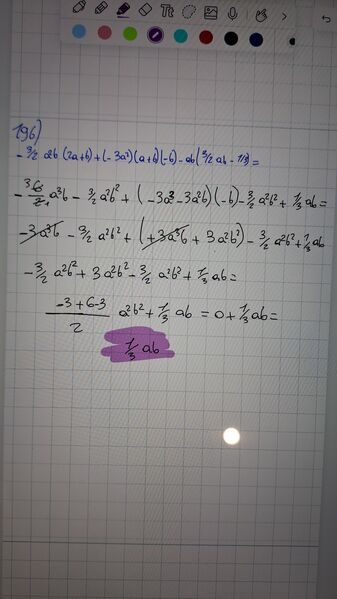 Tt
196)
- 3/2 ab (2a+b) + (- 3a²) (a+b) (-b) - ab (3/2 ab - 1/3) =
- 36/2 1 a³b - 3/2 a²b² + ( -3a³ - 3a²b) (-b) - 3/2 a²b² + 1/3 ab =
- 3a³b - 3/2 a²b² + (+3a³b + 3a²b²) - 3/2 a²b² + 1/3 ab
- 3/2 a²b² + 3a²b² - 3/2 a²b² + 1/3 ab =
-3+6-3/2 a²b² + 1/3 ab = 0 + 1/3 ab =
1/3 ab